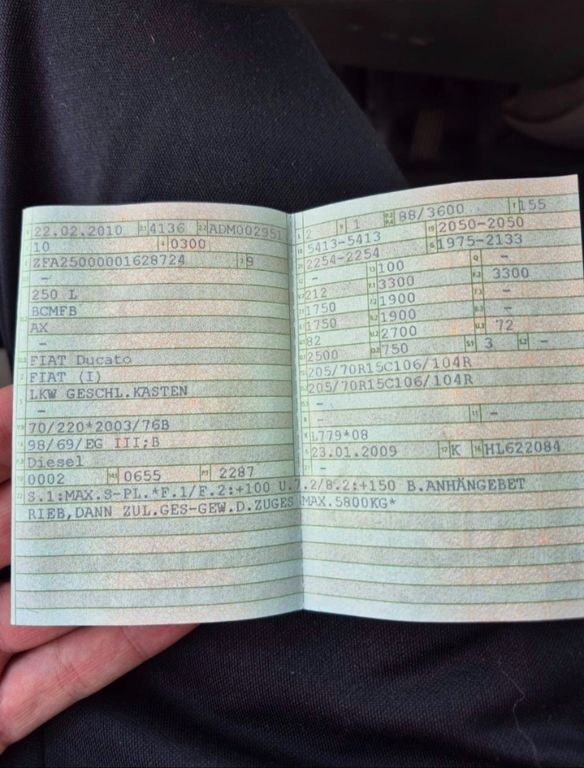 22.02.2010 4136 ADM00295
10 0300
ZFA25000001628724 9
-
250 L
BCMFB
AX
-
FIAT Ducato
FIAT (I)
LKW GESCHL.KASTEN
-
70/220*2003/76B
98/69/EG III;B
Diesel
0002 0655 2287
2 1 88/3600 155
5413-5413 2050-2050
2254-2254 1975-2133
- 100 -
212 3300 3300
1750 1900 -
1750 1900 -
82 2700 72
2500 750 3 -
205/70R15C106/104R
205/70R15C106/104R
-
- -
L779*08
23.01.2009 K HL622084
-
S.1:MAX.S-PL.*F.1/F.2:+100 U.7.2/8.2:+150 B.ANHÄNGEBET
RIEB,DANN ZUL.GES-GEW.D.ZUGES MAX.5800KG*